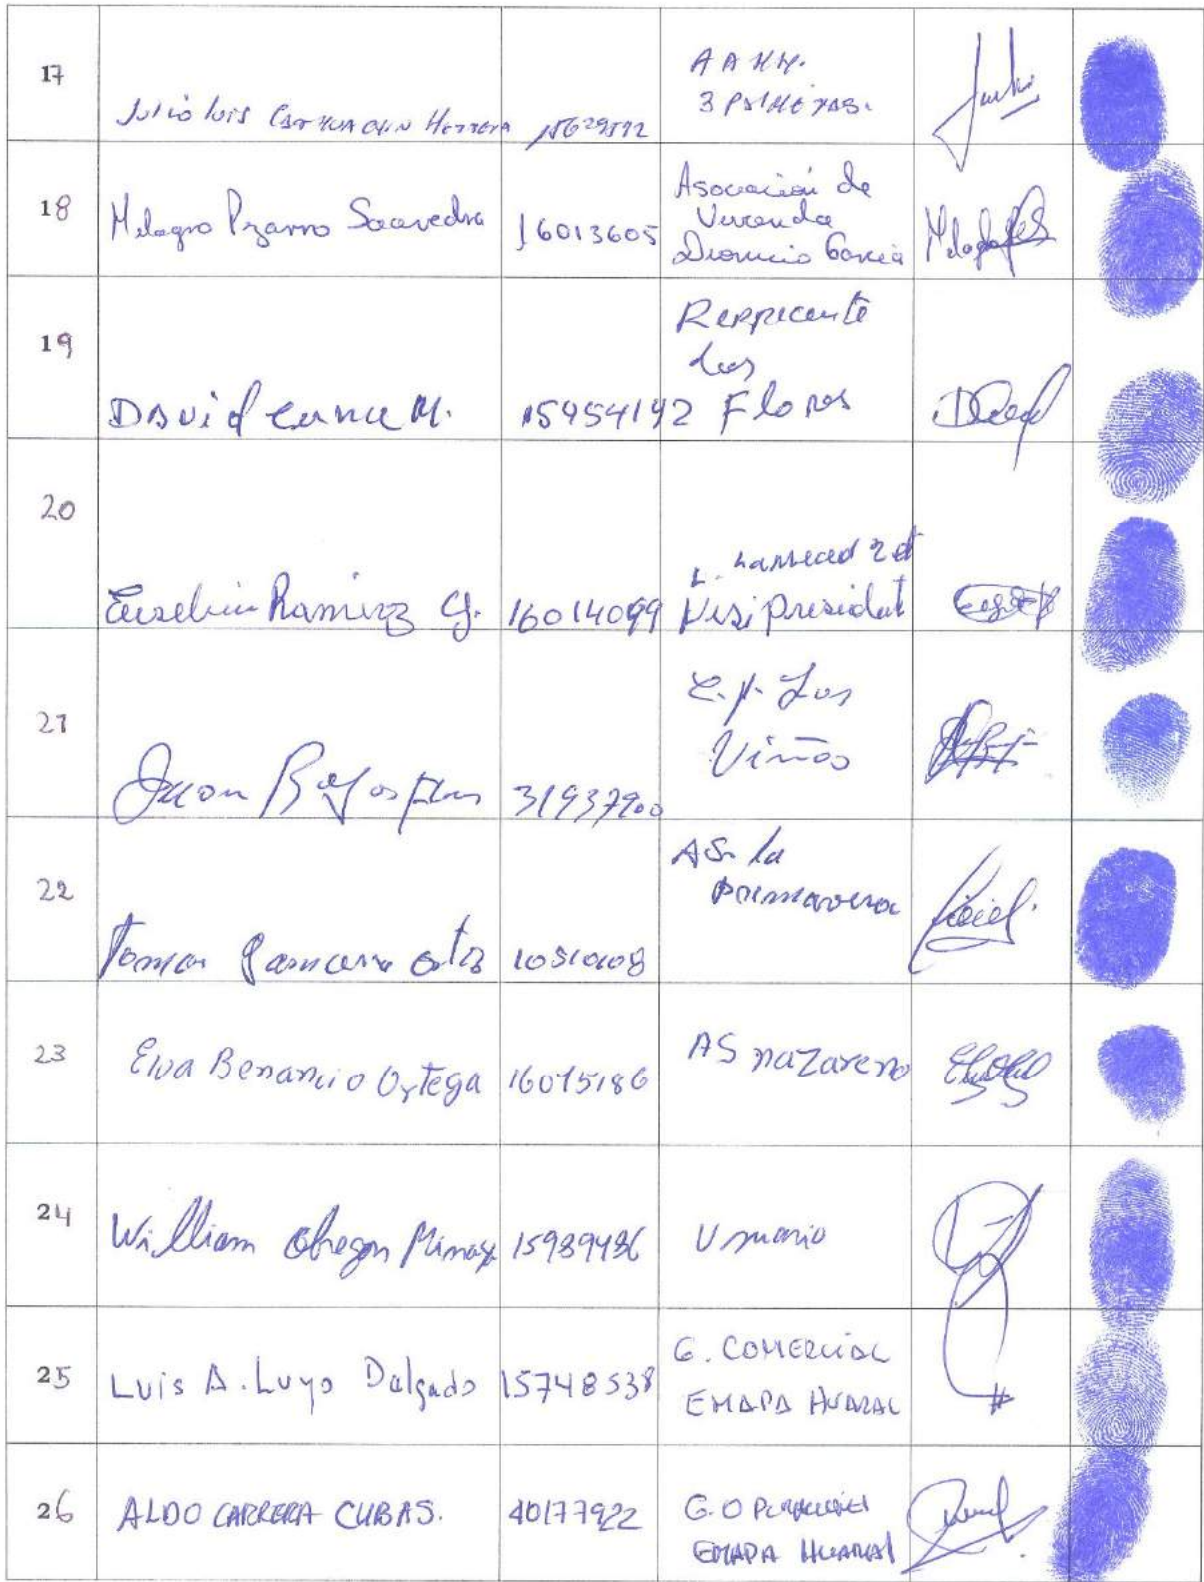 17
Julio Luis Carhuachin Herrera 15629572
AA HH.
3 PALMERAS.
18
Milagro Pizarro Saavedra 16013605
Asociación de
Vivenda
Dionicio Garcia
19
David M.
15954192
Las
Flores
20
Eusebio Ramirez G. 16014099
Visi Presidat
21
Juan 31937900
C.P. Los
Viñas
22
Ortiz
AS. la
Primavera
23
Elva Benancio Ortega 16015186
AS nazareno
24
William Obregon Minaya 15989486
Usuario
25
Luis A. Luyo Dalgado 15748538
G. COMERCIAL
EMAPA HUARAL
26
ALDO CARRERA CUBAS. 40177922
G.O
EMAPA HUARAL